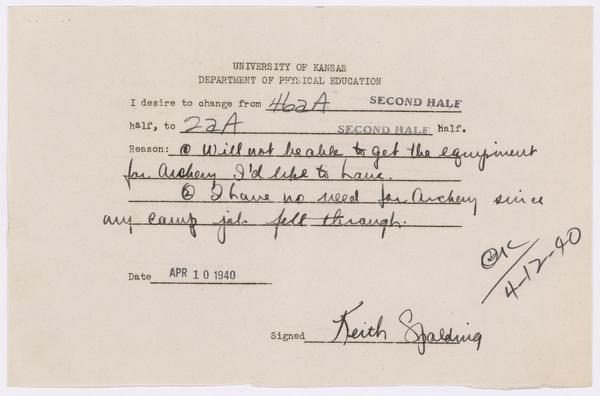 UNIVERSITY OF KANSAS
DEPARTMENT OF PHYSICAL EDUCATION
I desire to change from 462A SECOND HALF
half, to 22A SECOND HALF Half.
Reason: ① Will not be able to get the equipment
for Archery I'd like to have.
② I have no need for Archery since
my camp job fell through.
OK
4-12-40
Date APR 10 1940
Signed Keith Spalding